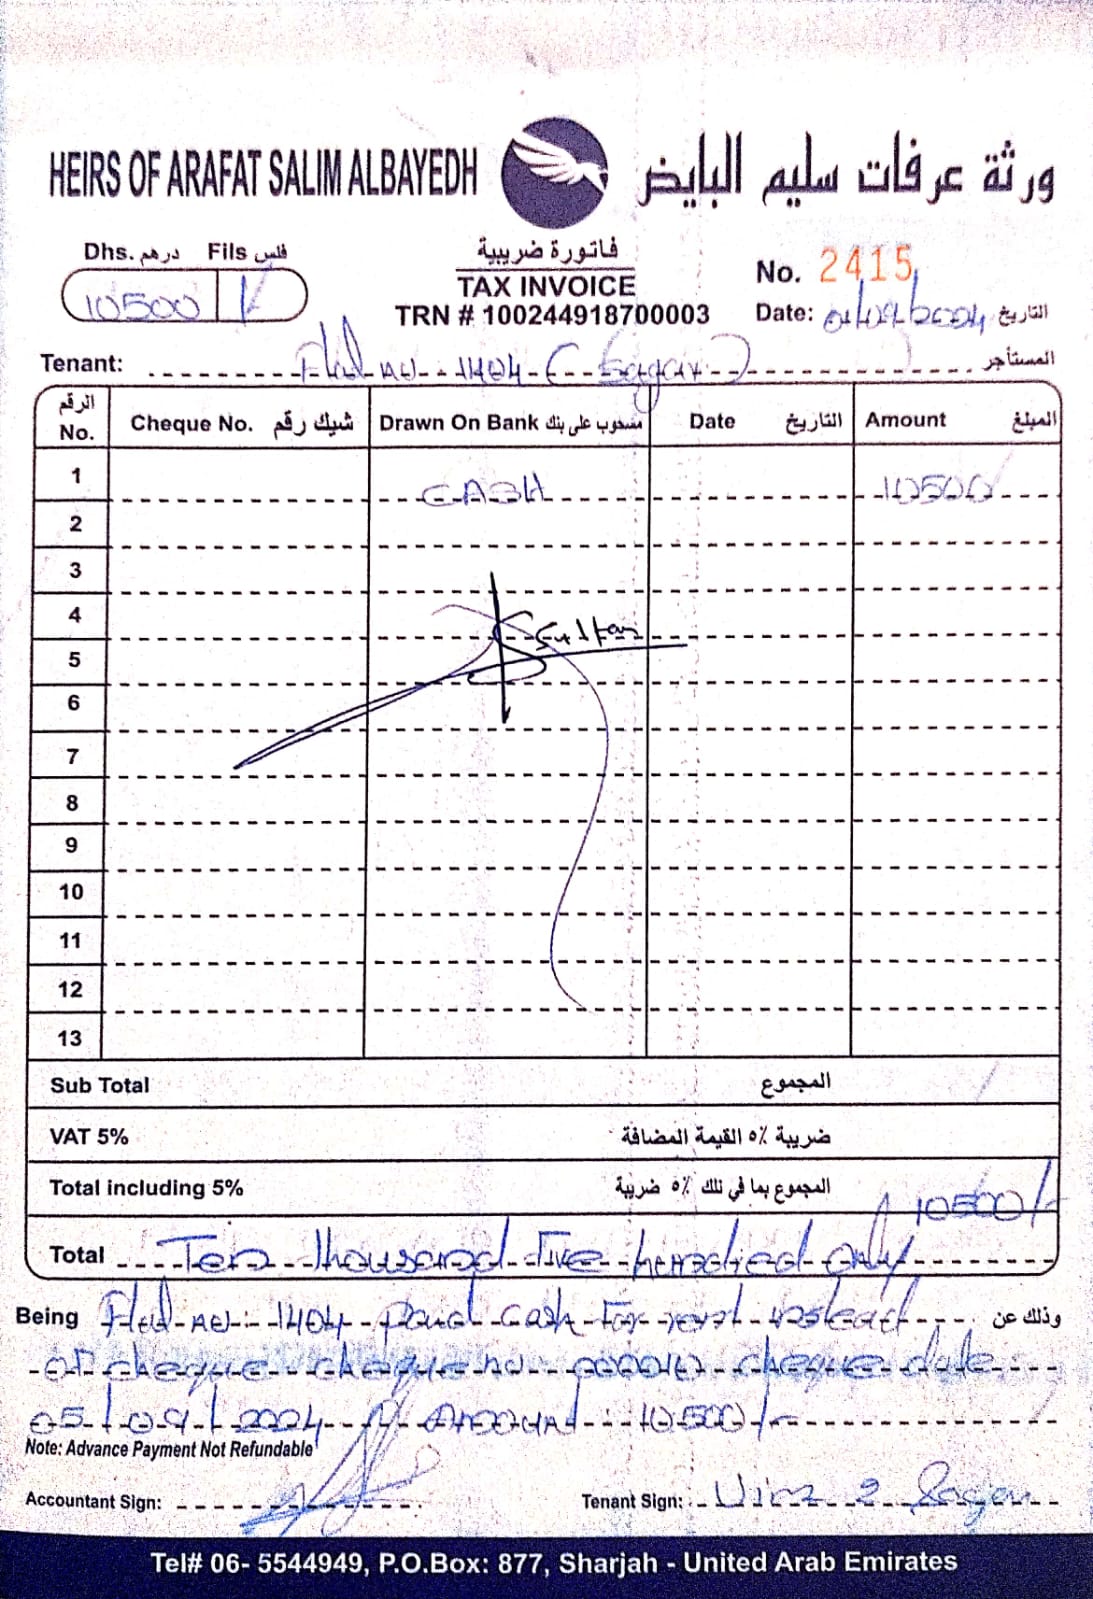 HEIRS OF ARAFAT SALIM ALBAYEDH ورثة عرفات سليم البايض
Dhs. درهم Fils فلس
10500 /
فاتورة ضريبية
TAX INVOICE
TRN # 100244918700003
No. 2415
Date: 04/09/2024 التاريخ
Tenant: Flat no 1404 ( Sagar ) المستأجر
الرقم No. Cheque No. شيك رقم Drawn On Bank مسحوب على بنك Date التاريخ Amount المبلغ
1 CASH 10500
2
3
4 Sultan
5
6
7
8
9
10
11
12
13
Sub Total المجموع
VAT 5% ضريبة ٥% القيمة المضافة
Total including 5% المجموع بما في تلك ٥% ضريبة 10500/-
Total Ten Thousand Five hundred only
Being Flat no: 1404 paid cash For rent instead وذلك عن
of cheque cheque no cheque date
05/09/2024 Amount: 10500/-
Note: Advance Payment Not Refundable
Accountant Sign:
Tenant Sign: Sagar
Tel# 06- 5544949, P.O.Box: 877, Sharjah - United Arab Emirates